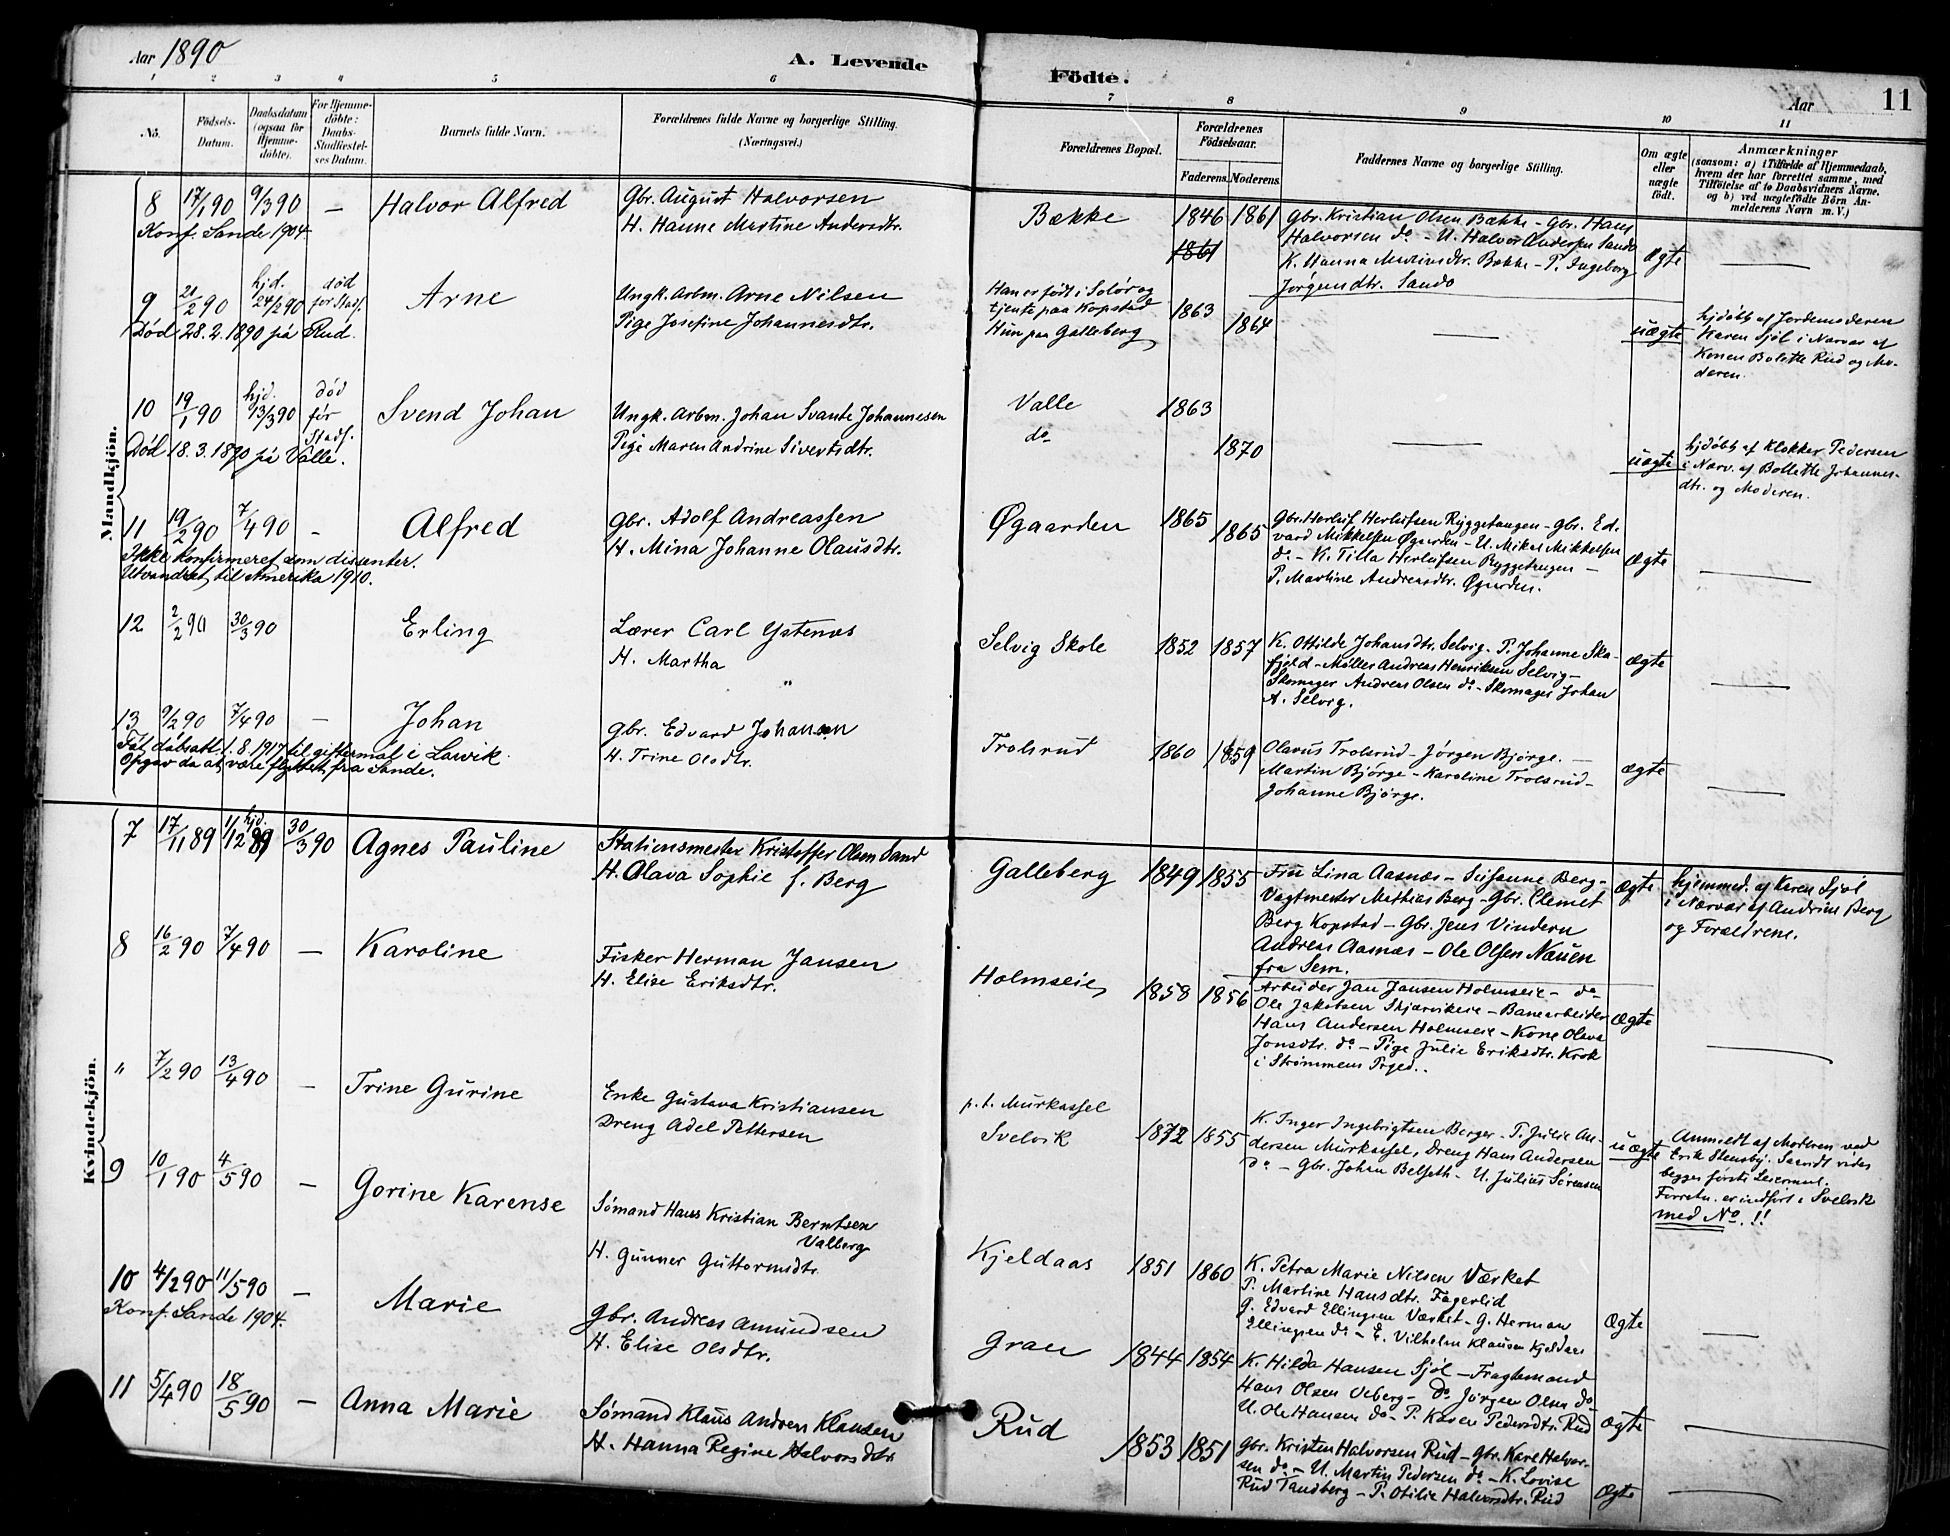 Aar 1890
A. Levende
Födte.
Aar
11
1 2 3 4 5 6 7 8 9 10 11
No.
Födsels-Datum.
Daabsdatum (ogsaa for Hjemme-döbte).
For Hjemme-döbte: Daabs-Stadfæstel-ses Datum.
Barnets fulde Navn.
Forældrenes fulde Navne og borgerlige Stilling. (Næringsvei.)
Forældrenes Bopæl.
Forældrenes Födselsaar.
Faderens. Moderens.
Faddernes Navne og borgerlige Stilling.
Om ægte eller uægte født.
Anmærkninger
(saasom: a) i Tilfælde af Hjemmedaab, hvem der har forrettet samme, med Tilföielse af to Daabsvidners Navne, og b) ved uægtefödte Börn An-melderens Navn m. V.)
Mandkjön.
8 17/1 90 9/3 90 — Halvor Alfred
Gbr. August Halvorsen
H. Hanne Martine Andersdtr.
Konf. Sande 1904.
Bække 1846 1861
1861
Gbr. Kristian Olsen Bække – Gbr. Hans
Halvorsen do – U. Halvor Andersen Sande
K. Hanna Martinsdtr. Bække – P. Ingeborg
Jørgensdtr. Sande
ægte
9 21/2 90 hjd. 24/2 90 død for Stadf. Arne
Ungk. Arbm. Arne Nilsen
Pige Josefine Johannesdtr.
Død 28.2.1890 på Rud.
Han er født i Solør og
tjente paa Kopstad
Hun paa Galleberg
1863 1864
uægte
hjdøbt af Jordemoderen
Karen Sjöl i Nærvær af
Konen Bolette Rud og Mo-
deren.
10 19/1 90 hjd. 13/3 90 død før Stadf. Svend Johan
Ungk. Arbm. Johan Svante Johannesen
Pige Maren Andrine Sivertsdtr.
Død 18.3.1890 på Valle.
Valle 1863
do 1870
uægte
hjdøbt af Klokker Pedersen
i Nærv. af Bollette Johannes-
dtr. og Moderen.
11 19/2 90 7/4 90 - Alfred
Gbr. Adolf Andreassen
H. Mina Johanne Olausdtr.
Ikke konfirmeret som dissenter.
Utvandret til Amerika 1910.
Øgaarden 1865 1865
Gbr. Herluf Herlufsen Ryggetangen – Gbr. Ed-
vard Mikkelsen Øgarden – U. Mikal Mikkelsen
do – K. Tilla Herlufsen Ryggetangen –
P. Martine Andreasdtr. Øgarden.
ægte
12 2/2 90 30/3 90 Erling
Lærer Carl Ystenæs
H. Martha "
Selvig Skole 1852 1857
K. Othilde Johansdtr. Selvig – P. Johanne Ska-
fjeld – Møller Andreas Henriksen Selvig –
Skomager Andreas Olsen do – Skomager Johan
A. Selvig.
ægte
13 9/2 90 7/4 90 — Johan
Gbr. Edvard Johansen
H. Trine Olsdtr.
Fåt dåbsatt. 1.8.1917 til giftermål i Larvik.
Opgav da at være flyttet fra Sande.
Trolsrud 1860 1859
Olavus Trolsrud – Jørgen Bjørge. –
Martin Bjørge – Karoline Trolsrud –
Johanne Bjørge.
ægte
Kvindekjön.
7 17/11 89 hjd. 11/12 89 30/3 90 Agnes Pauline
Stationsmester Kristoffer Olsen Sand
H. Olava Sophie f. Berg
Galleberg 1849 1855
Fru Lina Aasnæs – Susanne Berg –
Vagtmester Mathias Berg – Gbr. Clemet
Berg Kopstad – Gbr. Jens Vindern
Andreas Aasnæs – Ole Olsen Nauen
fra Sem.
ægte
hjemmed. af Karen Sjöl
i Nærvær af Andrine Berg
og Forældrene.
8 16/2 90 7/4 90 — Karoline
Fisker Herman Jansen
H. Elise Eriksdtr.
Holmseie 1858 1856
Arbeider Jan Jansen Holmseie – do
Ole Jakobsen Skjærvikeie – Banearbeider
Hans Andersen Holmseie – Kone Olava
Jonsdtr. do – Pige Julie Eriksdtr. Krok
i Strømmens Prgd.
ægte
" 7/2 90 13/4 90 — Trine Gurine
Enke Gustava Kristiansen
Dreng Adel Pettersen
p.t. Murkassel
Svelvik 1872 1855
K. Inger Ingebrigtsen Berger – P. Julie An-
dersen Murkassel, Dreng Hans Andersen
do – Gbr. Johan Belseth – U. Julius Sørensen
uægte
Anmeldt af Moderen ved
Erik Stensby. Saavidt vides
begges første Leiermaal.
Forretn. er indført i Svelvik
med No. !!
9 10/1 90 4/5 90 — Gorine Karense
Sømand Hans Kristian Berntsen
Valberg
H. Gunner Guttormsdtr.
Kjeldaas 1851 1860
K. Petra Marie Nilsen Værket
P. Martine Hansdtr. Fagerlid
G. Edvard Ellingsen Værket – G. Herman
Ellingsen do – E. Vilhelm Klausen Kjeldaas
ægte
10 4/2 90 11/5 90 — Marie
Gbr. Andreas Amundsen
H. Elise Olsdtr.
Konf. Sande 1904.
Gran 1844 1854
K. Hilda Hansen Sjöl – Fragtemand
Hans Olsen Veberg – do Jørgen Olsen do
U. Ole Hansen do – P. Karen Pedersdtr. Rud
ægte
11 5/4 90 18/5 90 — Anna Marie
Sømand Klaus Andreas Klausen
H. Hanna Regine Halvorsdtr.
Rud 1853 1851
Gbr. Kristen Halvorsen Rud – Gbr. Karl Halvor-
sen do – U. Martin Pedersen do – K. Lovise
Rud Tandberg – P. Otilie Halvorsdtr. Rud
ægte